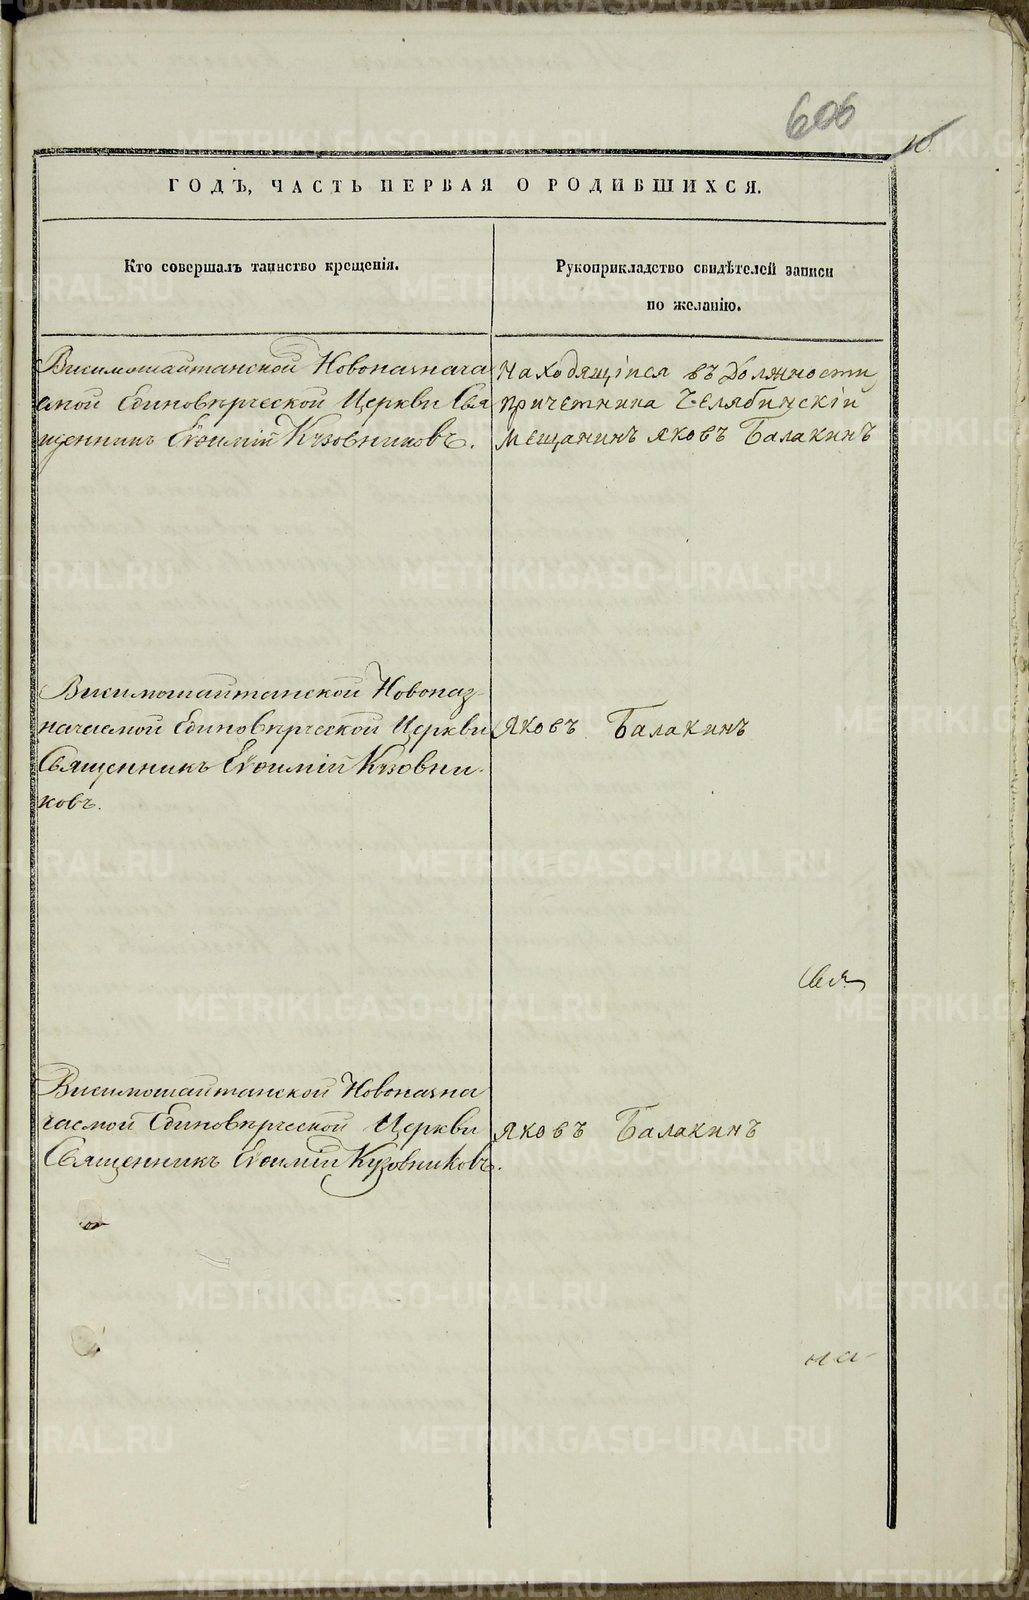 606
10.
ГОДЪ, ЧАСТЬ ПЕРВАЯ О РОДИВШИХСЯ.
Кто совершалъ таинство крещенія.
Рукоприкладство свидѣтелей записи
по желанію.
Висимошайтанской Новоназнача
емой Единовѣрческой Церкви Свя
щенникъ Евѳимій Кузовниковъ.
Находящійся въ Должности
причетника Челябинскій
мещанинъ Яковъ Балакинъ
Висимошайтанской Новоназ-
начаемой Единовѣрческой Церкви
Священникъ Евѳимій Кузовни-
ковъ.
Яковъ Балакинъ
Свя
Висимошайтанской Новоназна
чаемой Единовѣрческой Церкви
Священникъ Евѳимій Кузовниковъ.
Яковъ Балакинъ
METRIKI.GASO-URAL.RU